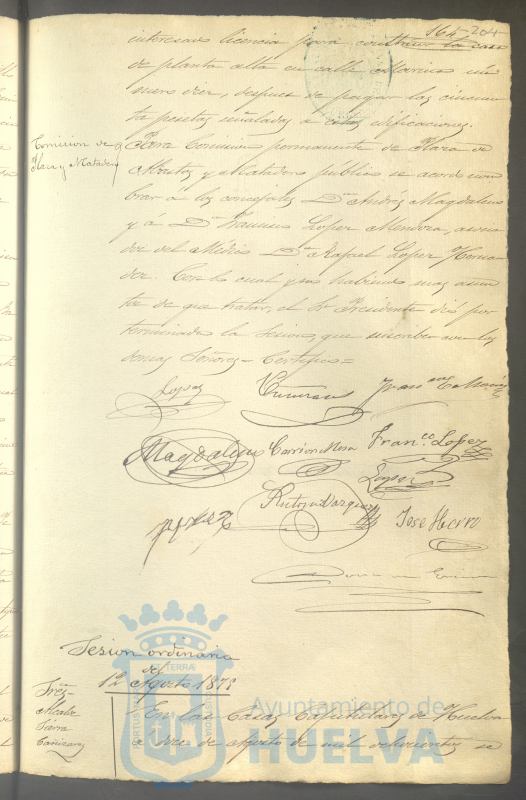 164-204
interesado licencia para construir la casa
de planta alta en calle Marina nú
mero diez, despues de pagar las cincuen
ta pesetas señaladas a estas edificaciones.
Comision de
Haza y Matadero
Para Comision permanente de Haza de
Abastos y Matadero público se acordó nom
brar a los concejales Dn Andrés Magdalena
y á Dn Francisco Lopez Mendoza,
del Médico Dn Rafael Lopez Hernan
dez. Con lo cual y no habiendo mas asun
tos de que tratar, el Sr Presidente dió por
terminada la Sesion, que suscriben con los
demas Señores = Certifico =
Lopez
Magdalena Carrion Mora Franco. Lopez
Lopez
Vazquez Jose Hierro
Sesion ordinaria
del
12 Agosto 1878
Sres
Alcalde
En las Casas Capitulares de Huelva
á doce de Agosto de mil ochocientos se
Ayuntamiento de
HUELVA